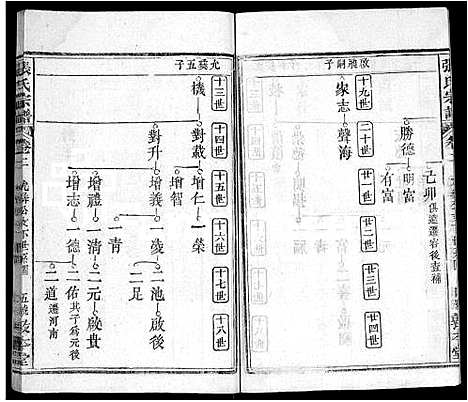 張氏宗譜
卷二
勝德
明富
有富
乙卯
俱遠遷容後查補
啟飛嗣子
十九世
二十世
廿一世
廿二世
廿三世
廿四世
家志
聲海
敦本堂
允葵五子
十三世
十四世
十五世
十六世
十七世
十八世
機
對蔵
增仁
一榮
增智
對升
增義
一凌
二池
啟後
二足
一青
增禮
一清
二元
啟貴
增志
一德
二佑
其子為元後
二道
遷河南
張氏宗譜
卷二
敦本堂